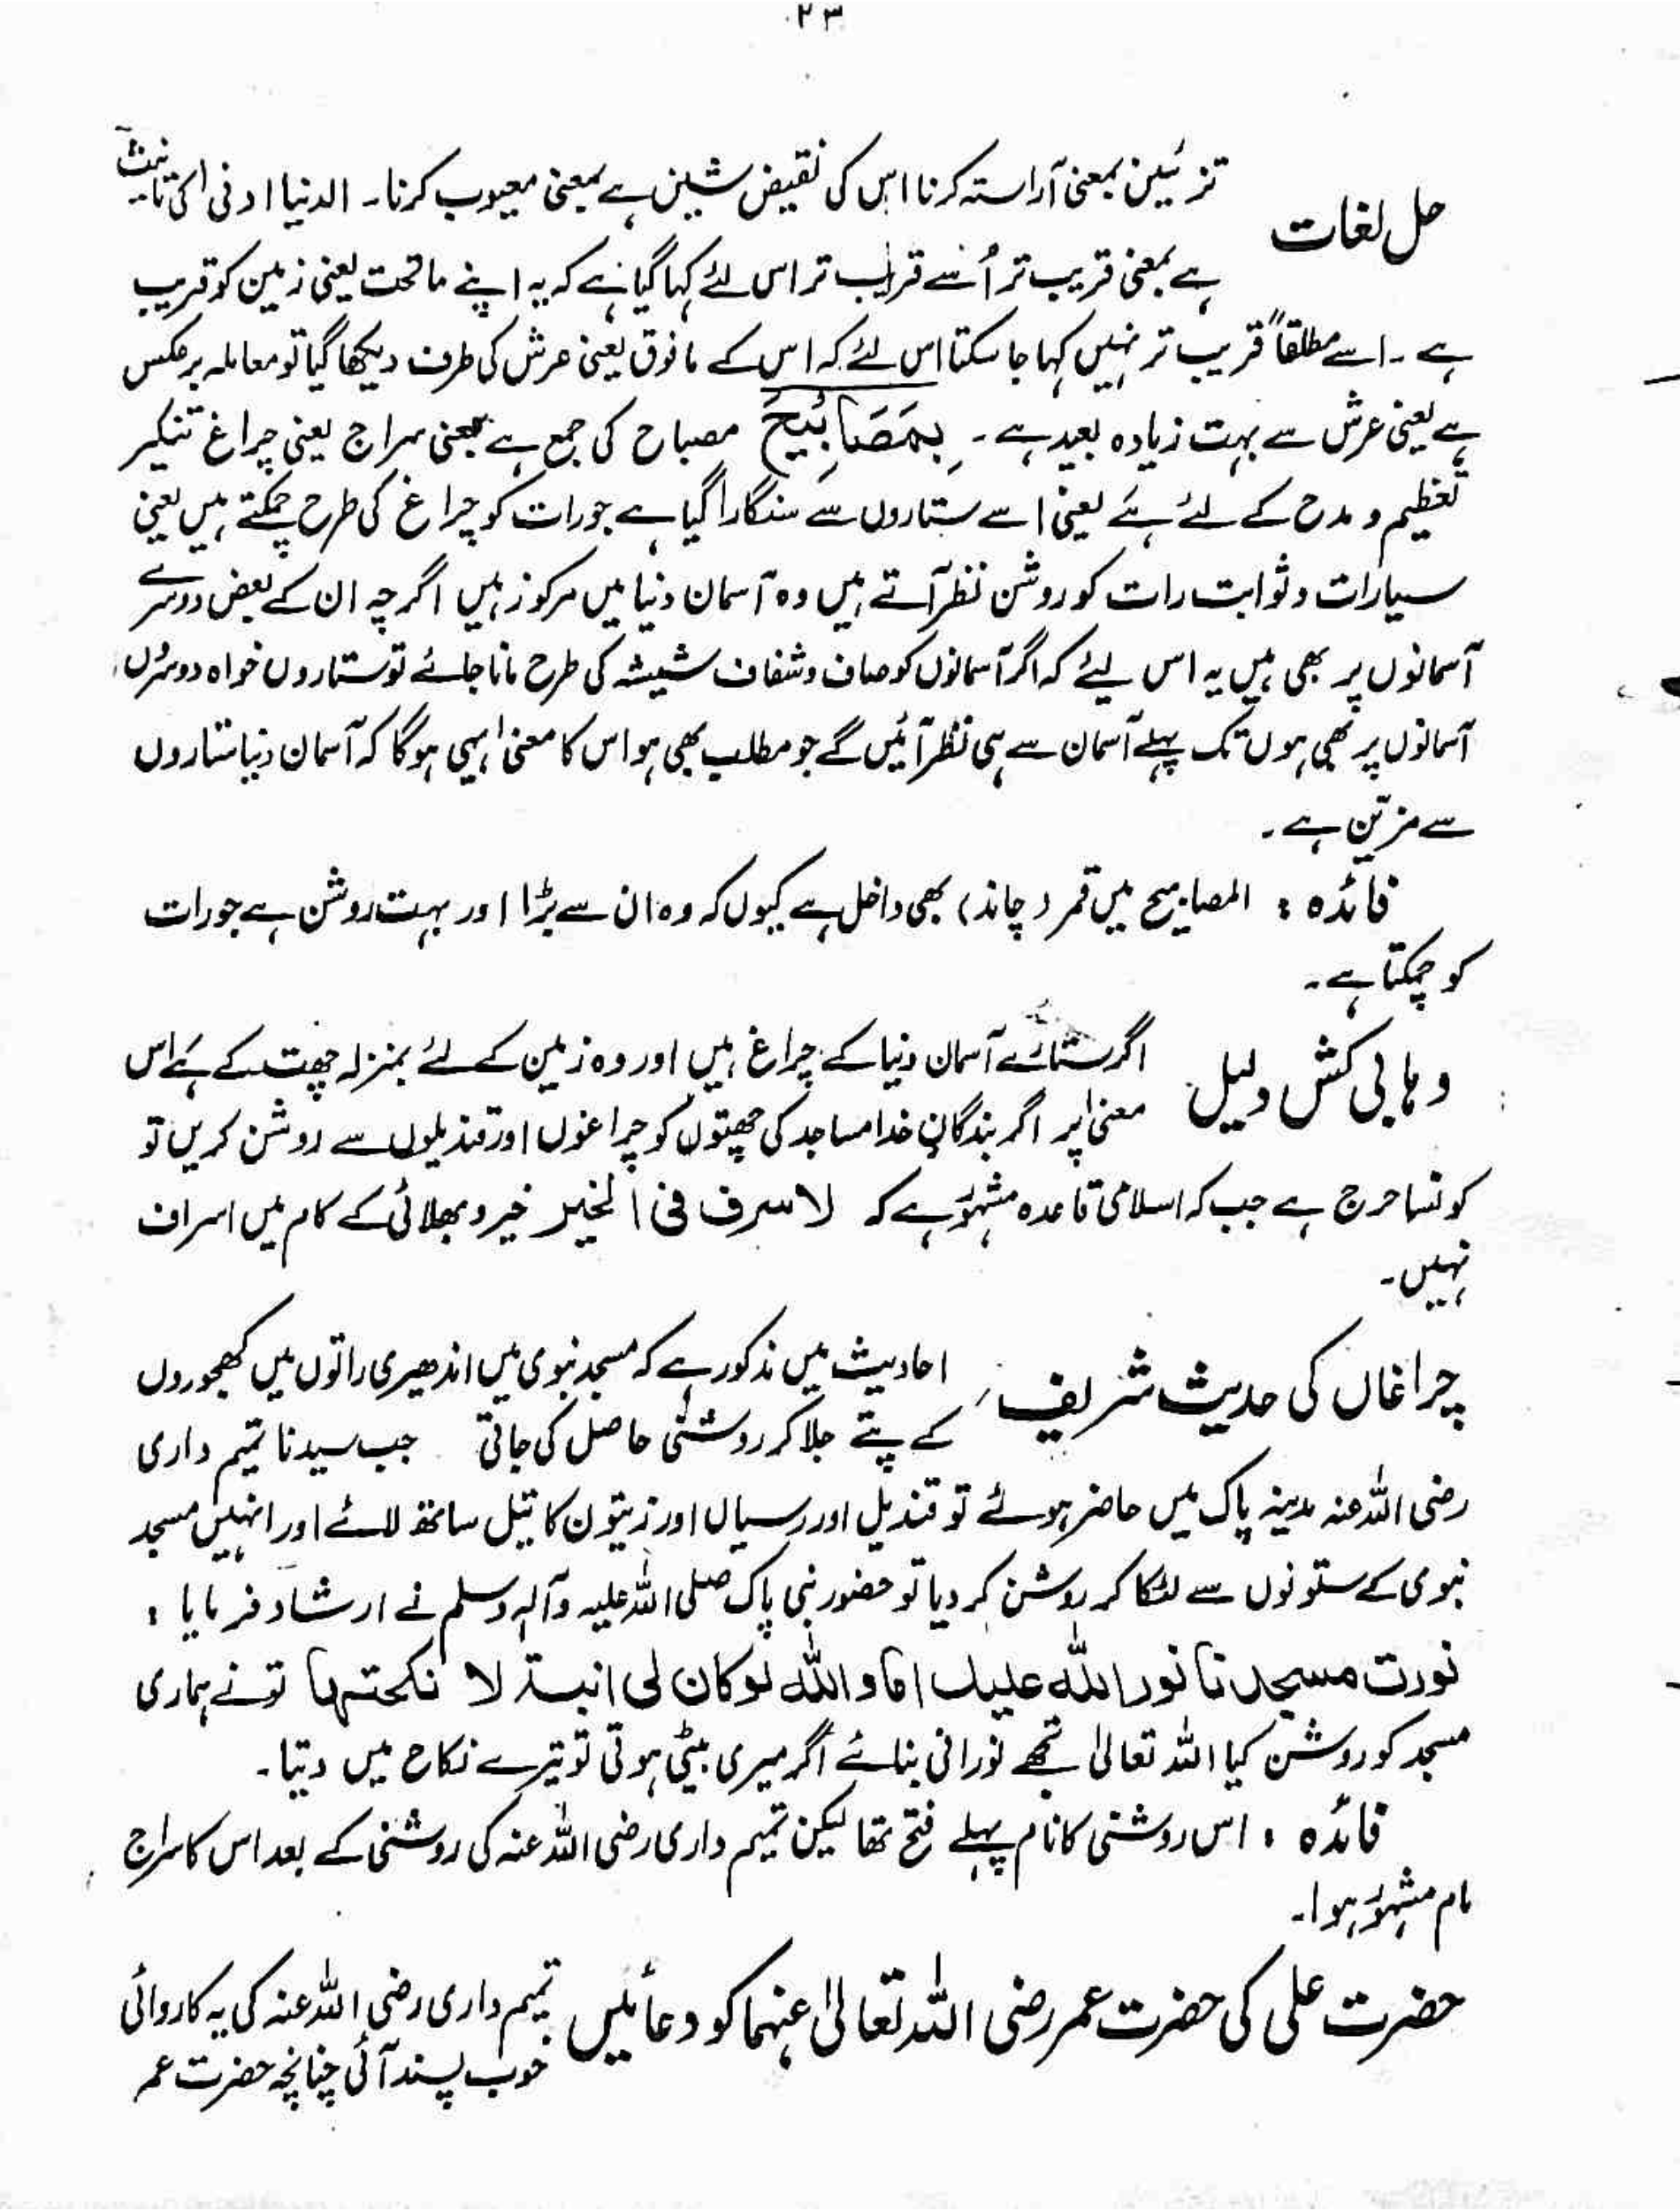 ۲۳
حل لغات
تزئین بمعنی آراستہ کرنا اس کی نقیض شین ہے بمعنی معیوب کرنا۔ الدنیا ادنی کی تانیث
ہے بمعنی قریب تر اُسے قریب تر اس لئے کہا گیا ہے کہ یہ اپنے ماتحت یعنی زمین کو قریب
ہے۔ اسے مطلقاً قریب تر نہیں کہا جا سکتا اس لئے کہ اس کے مافوق یعنی عرش کی طرف دیکھا گیا تو معاملہ برعکس
ہے یعنی عرش سے بہت زیادہ بعید ہے۔ بِمَصَابِیْحَ مصباح کی جمع ہے بمعنی سراج یعنی چراغ تنکیر
تعظیم و مدح کے لئے ہے یعنی اسے ستاروں سے سنگارا گیا ہے جو رات کو چراغ کی طرح چمکتے ہیں یعنی
سیارات و ثوابت رات کو روشن نظر آتے ہیں وہ آسمان دنیا میں مرکوز ہیں اگرچہ ان کے بعض دوسرے
آسمانوں پر بھی ہیں یہ اس لیئے کہ اگر آسمانوں کو صاف و شفاف شیشہ کی طرح مانا جائے تو ستاروں خواہ دوسروں
آسمانوں پر بھی ہوں تک پہلے آسمان سے ہی نظر آئیں گے جو مطلب بھی ہو اس کا معنی یہی ہوگا کہ آسمان دنیا ستاروں
سے مزیّن ہے۔
فائدہ : المصابیح میں قمر (چاند) بھی داخل ہے کیوں کہ وہ ان سے بڑا اور بہت روشن ہے جو رات
کو چمکتا ہے۔
وہابی کش دلیل
اگر ستارے آسمان دنیا کے چراغ ہیں اور وہ زمین کے لئے بمنزلہ چھت کے ہے اس
معنی پر اگر بندگانِ خدا مساجد کی چھتوں کو چراغوں اور قندیلوں سے روشن کریں تو
کونسا حرج ہے جب کہ اسلامی قاعدہ مشہور ہے کہ لاسرف فی الخیر خیر و بھلائی کے کام میں اسراف
نہیں۔
چراغاں کی حدیث شریف
احادیث میں مذکور ہے کہ مسجد نبوی میں اندھیری راتوں میں کھجوروں
کے پتے جلا کر روشنی حاصل کی جاتی جب سیدنا تمیم داری
رضی اللہ عنہ مدینہ پاک میں حاضر ہوئے تو قندیل اور رسیاں اور زیتون کا تیل ساتھ لائے اور انہیں مسجد
نبوی کے ستونوں سے لٹکا کر روشن کر دیا تو حضور نبی پاک صلی اللہ علیہ وآلہٖ وسلم نے ارشاد فرمایا :
نورت مسجدنا نور اللہ علیک اما واللہ لو کان لی ابنۃ لا نکحتہا تو نے ہماری
مسجد کو روشن کیا اللہ تعالیٰ تجھے نورانی بنائے اگر میری بیٹی ہوتی تو تیرے نکاح میں دیتا۔
فائدہ : اس روشنی کا نام پہلے فتح تھا لیکن تمیم داری رضی اللہ عنہ کی روشنی کے بعد اس کا سراج
نام مشہور ہوا۔
حضرت علی کی حضرت عمر رضی اللہ تعالیٰ عنہما کو دعائیں
تمیم داری رضی اللہ عنہ کی یہ کاروائی
خوب پسند آئی چنانچہ حضرت عمر